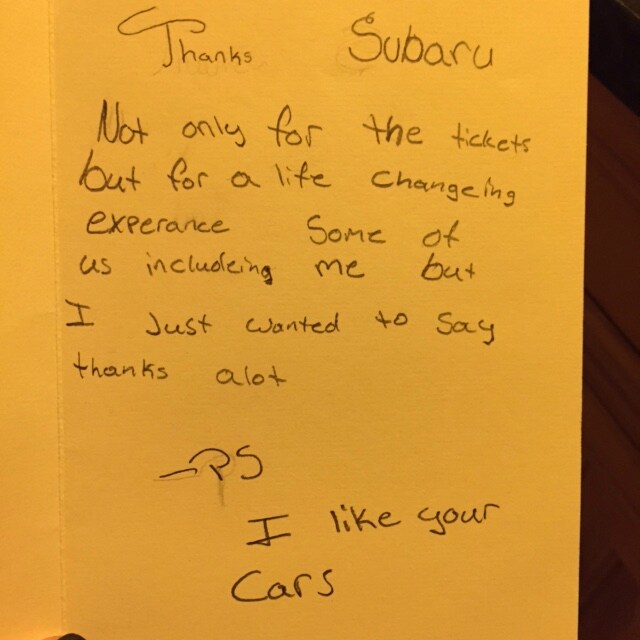 Thanks Subaru
Not only for the tickets
but for a life changeing
experance Some of
us includeing me but
I Just wanted to say
thanks alot
-PS
I like your
Cars